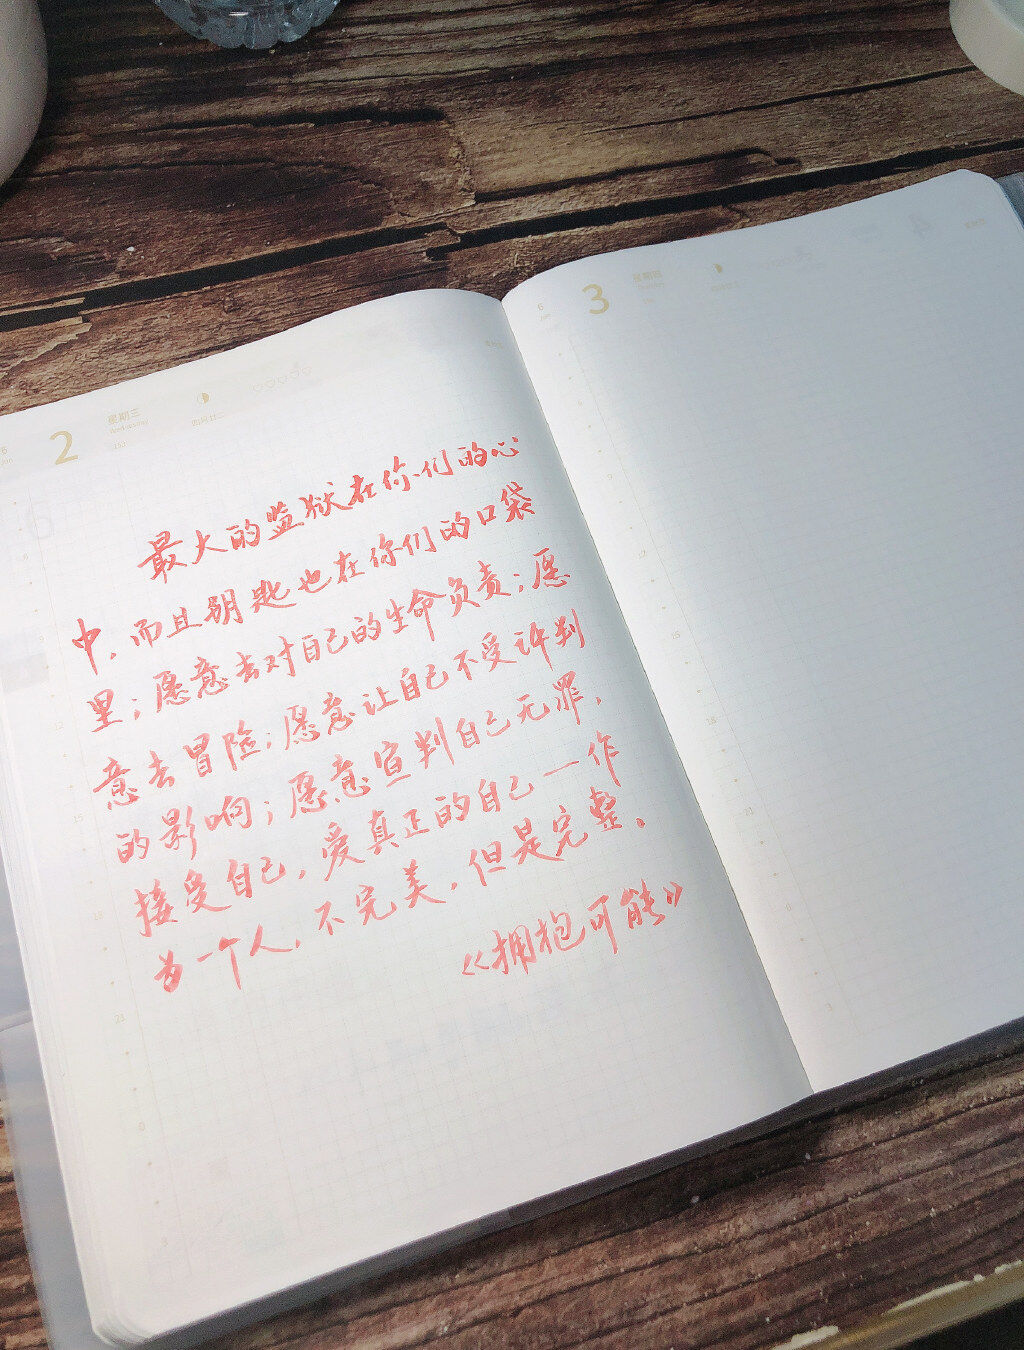 6
Jun
2
星期三
Wednesday
153
最大的监狱在你们的心
中,而且钥匙也在你们的口袋
里;愿意去对自己的生命负责;愿
意去冒险;愿意让自己不受评判
的影响;愿意宣判自己无罪,
接受自己,爱真正的自己一作
为一个人,不完美,但是完整。
《拥抱可能》
6
Jun
3
星期四